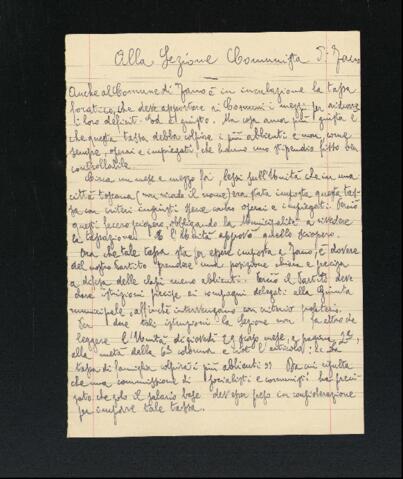 Alla Sezione Comunista di Fano
Anche al Comune di Fano è in circolazione la tassa
focatico, che deve apportare ai Comuni i mezzi per ridurre
i loro deficit. Ed è giusto. Ma cosa ancor più giusta è
che questa tassa debba colpire i più abbienti e non, come
sempre, operai e impiegati che hanno uno stipendio fisso ben
controllabile.
Circa un mese e mezzo fa, lessi sull'Unità che in una
città toscana (non ricordo il nome) era stata imposta questa tas-
sa con criteri ingiusti verso operai e impiegati. Perciò
questi fecero sciopero, obbligando la Municipalità a rivedere
la tassazione. E l'Unità approvò quello sciopero.
Ora che tale tassa sta per essere imposta a Fano, è dovere
del nostro Partito prendere una posizione chiara e precisa
a difesa delle classi meno abbienti. Perciò il Partito deve
dare istruzioni precise ai compagni delegati alla Giunta
municipale, affinché intervengano con criterio
Per dare tali istruzioni la Sezione non ha altro da
leggere l'Unità di giovedì 29 mese, a pagina 2ª,
alla metà della 6ª colonna e l'articolo: "La
tassa di famiglia colpirà i più abbienti". Da cui risulta
che una commissione di socialisti e comunisti ha preci-
sato che solo il salario base dev'esser preso in considerazione
per imporre tale tassa.